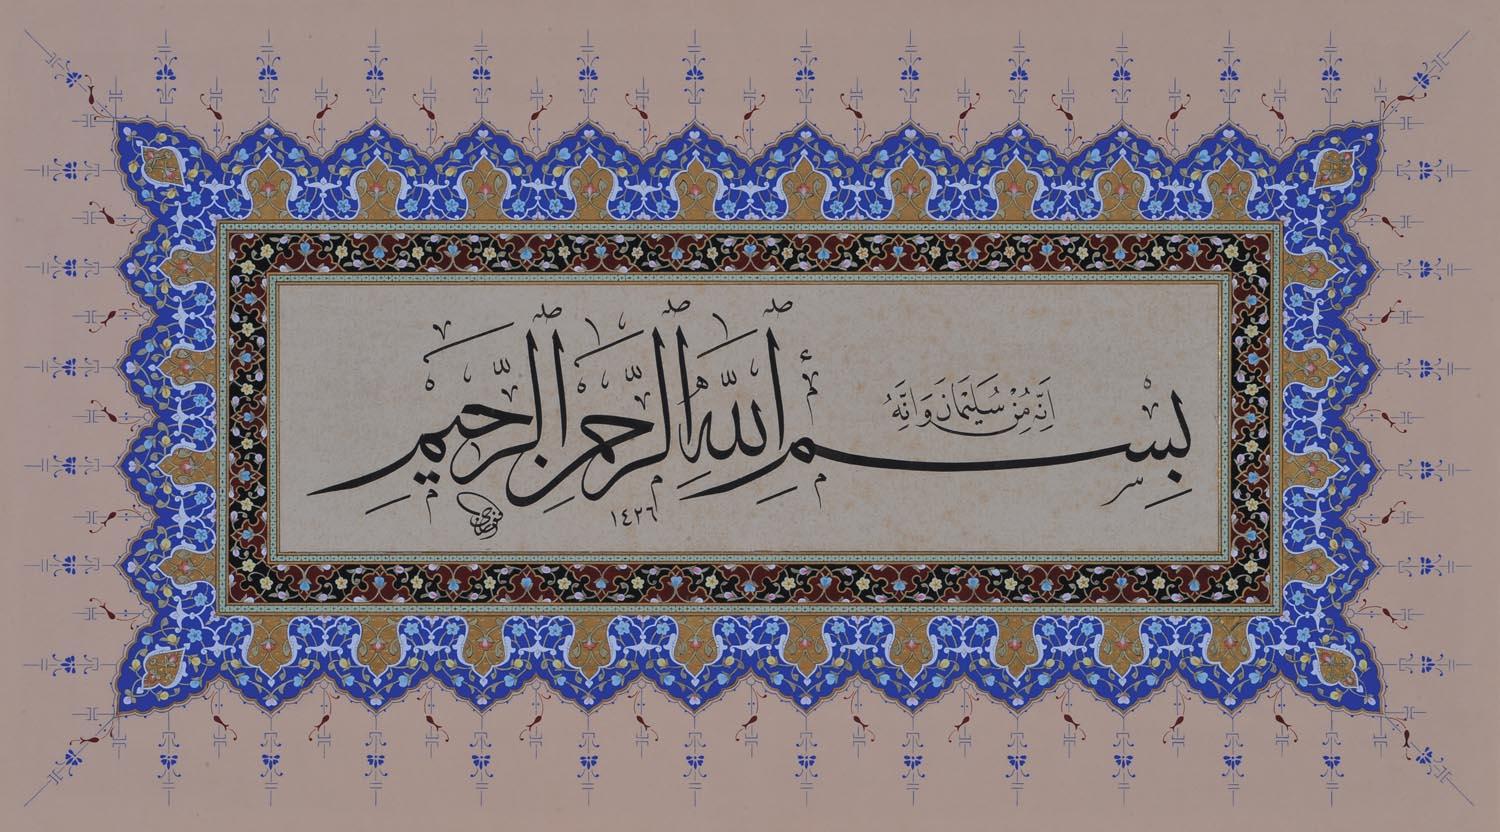 انه من سليمان وانه
بسم الله الرحمن الرحيم
١٤٢٦